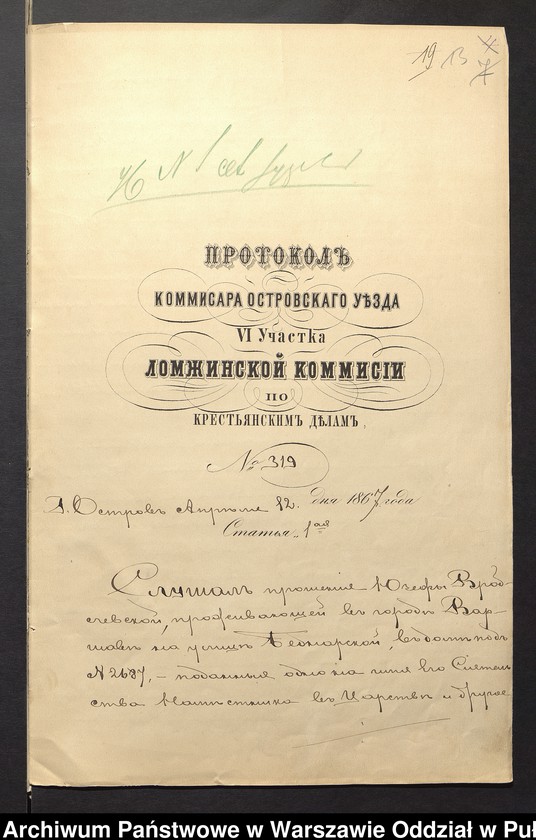 19 13
7
ПРОТОКОЛЪ
КОММИСАРА ОСТРОВСКАГО УѢЗДА
VI Участка
ЛОМЖИНСКОЙ КОММИСІИ
ПО
КРЕСТЬЯНСКИМЪ ДѢЛАМЪ.
№ 319
Г. Островъ Апрѣля 12. дня 1867 года
Статья 1ая
Слушалъ прошение Юзефы Врод-
левской, проживающей въ городѣ Вар-
шавѣ на улицѣ Беднарской, въ домѣ подъ
№ 2687, – поданныя одно на имя Его Сіятель
ства Намѣстника въ Царствѣ и другое
Archiwum Państwowe w Warszawie Oddział w Puł